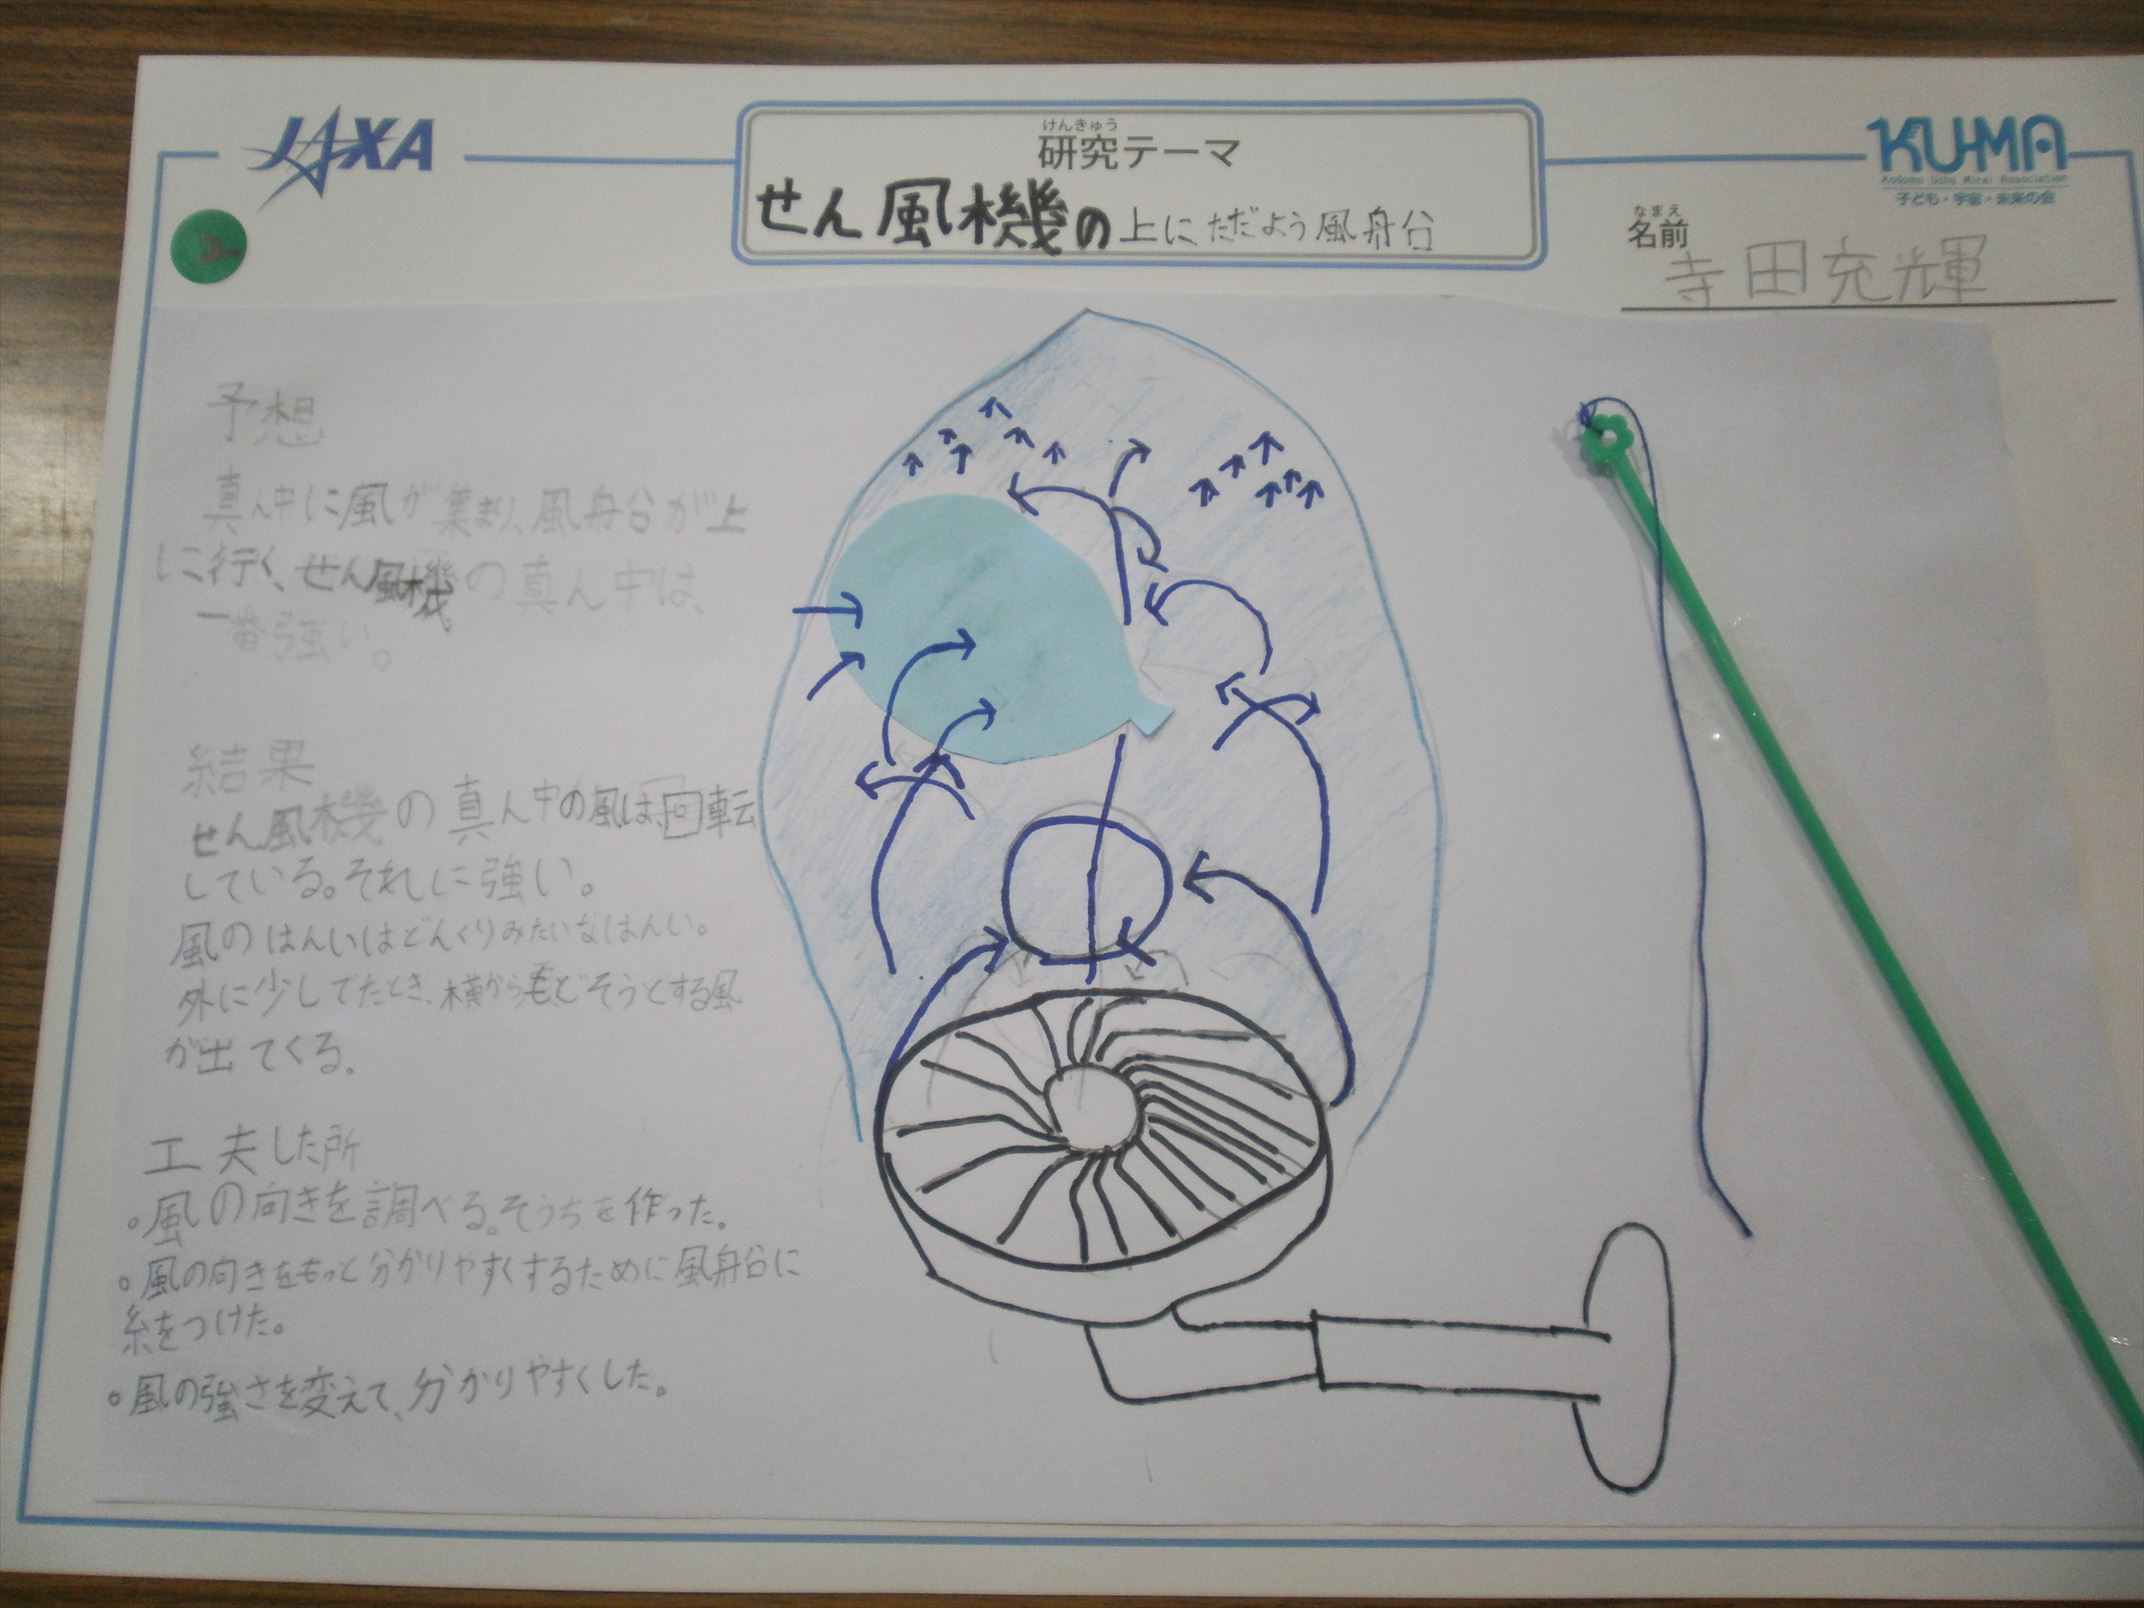 JAXA
けんきゅう
研究テーマ
せん風機の上にただよう風舟台
KU-MA
Kodomo Uchu Mirai Association
子ども・宇宙・未来の会
なまえ
名前
寺田充輝
予想
真ん中に風が集まり、風舟台が上
に行く、せん風機の真ん中は、
一番強い。
結果
せん風機の真ん中の風は、回転
している。それに強い。
風のはんいはどんぐりみたいなはんい。
外に少してたとき、横からもどそうとする風
が出てくる。
工夫した所
。風の向きを調べる。そうちを作った。
。風の向きをもっと分かりやすくするために風舟台に
糸をつけた。
。風の強さを変えて、分かりやすくした。